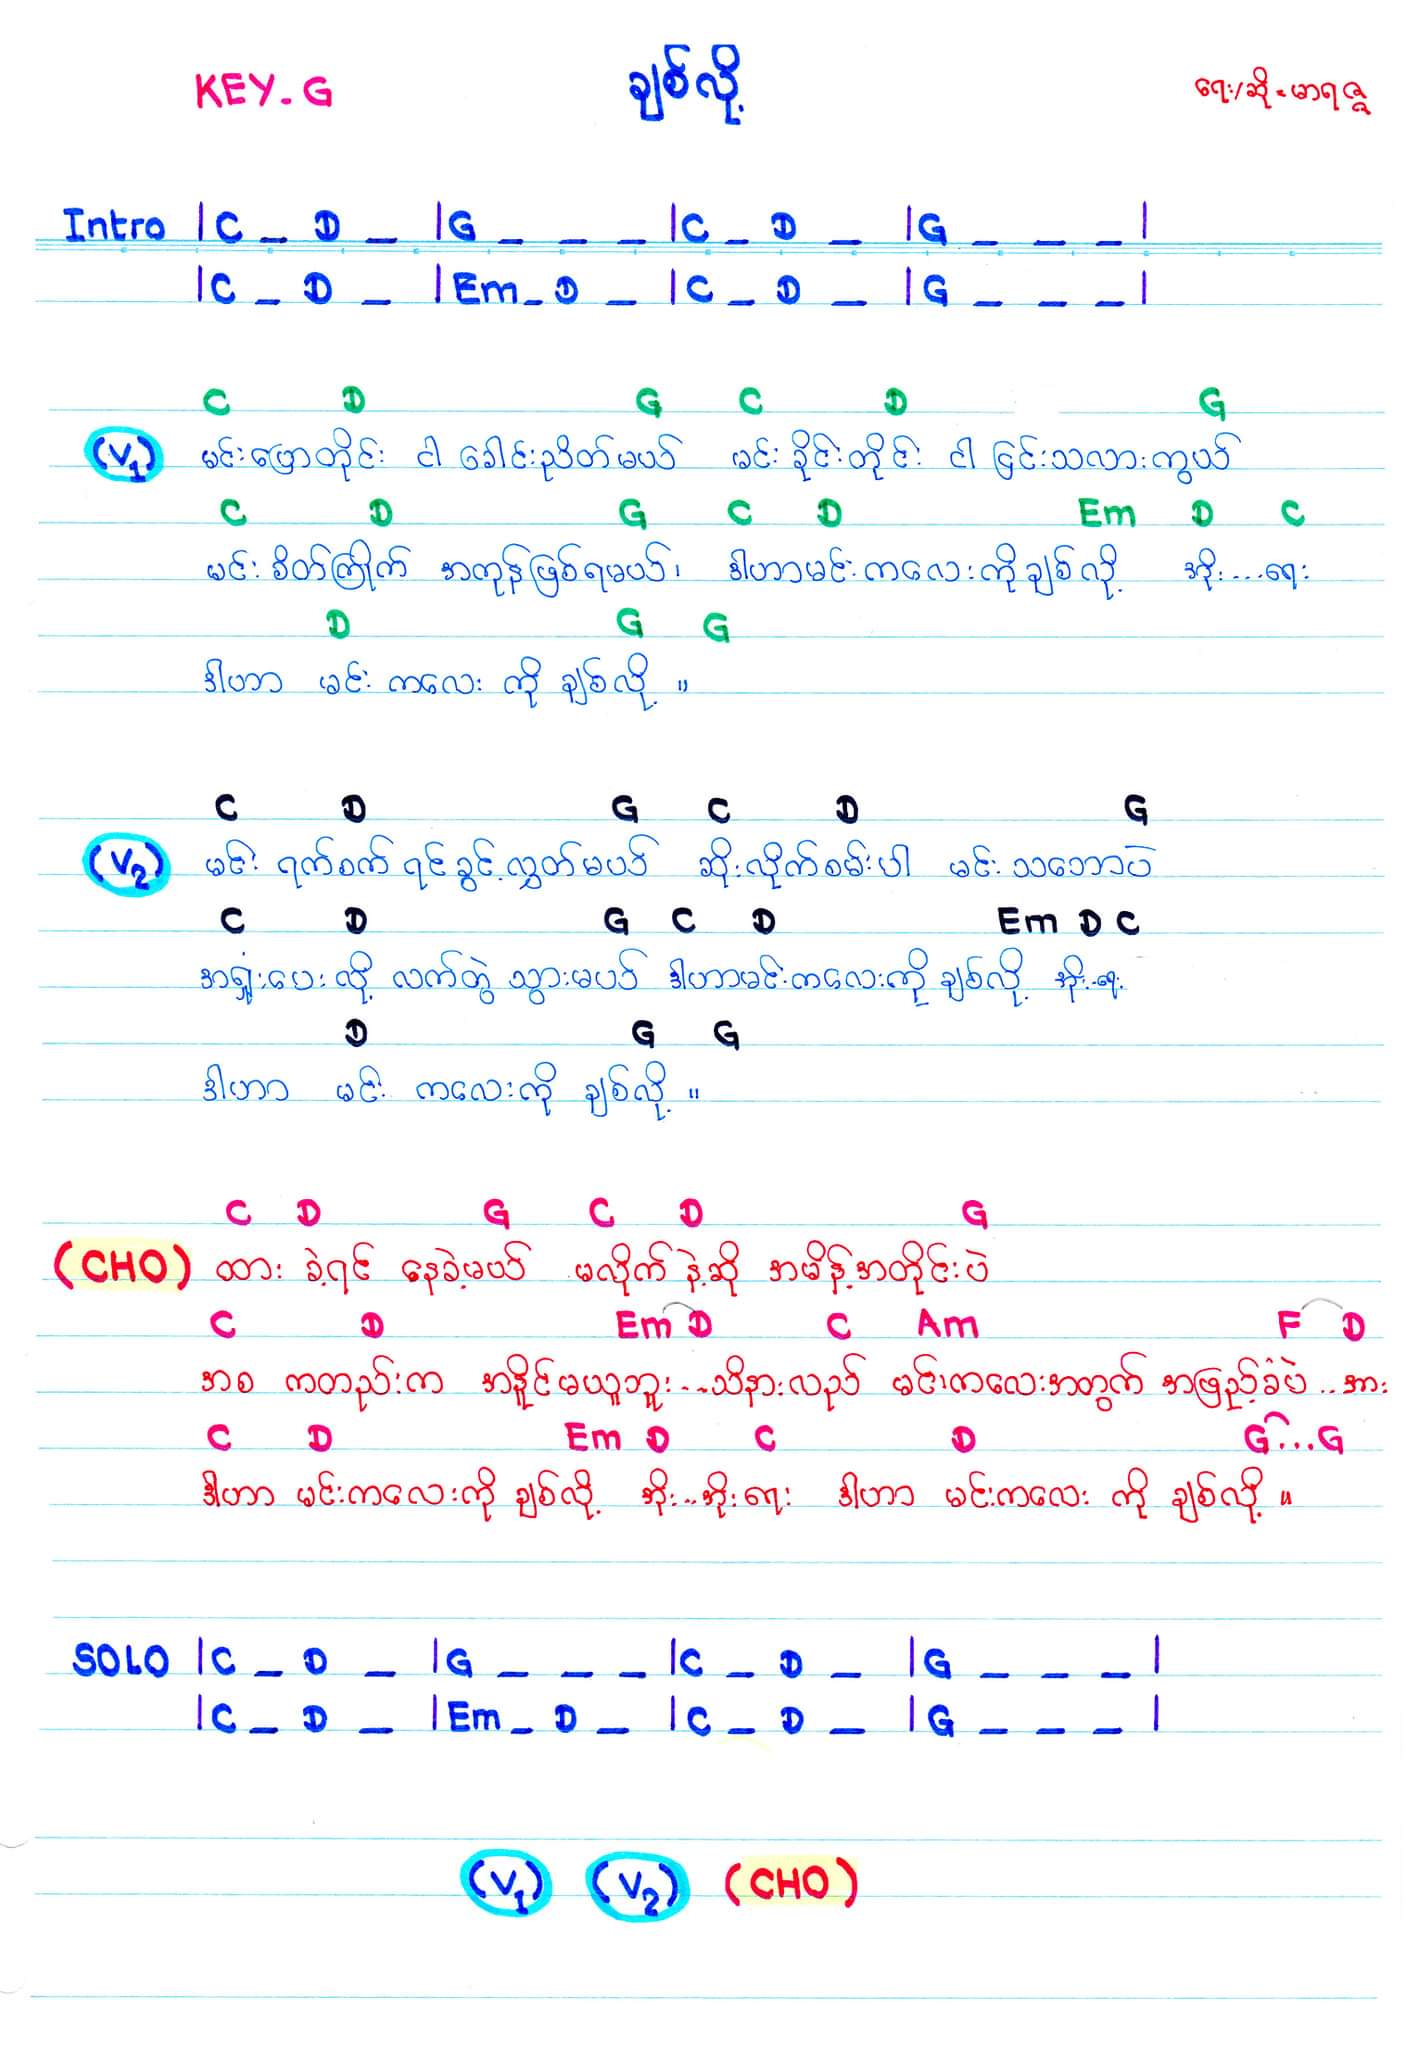 KEY. G ချစ်လို့ ရေး/ဆို - မာရဇ္ဇ
Intro |C _ D _ |G _ _ _ |C _ D _ |G _ _ _ |
|C _ D _ |Em _ D _ |C _ D _ |G _ _ _ |
C D G C D G
(V1) မင်းပြောတိုင်း ငါ ခေါင်းညိတ်မယ် မင်း ခိုင်းတိုင်း ငါ ငြင်းသလားကွယ်
C D G C D Em D C
မင်း စိတ်ကြိုက် အကုန်ဖြစ်ရမယ်၊ ဒါဟာမင်းကလေးကိုချစ်လို့ အိုး....ရေး
D G G
ဒါဟာ မင်း ကလေး ကို ချစ်လို့ ။
C D G C D G
(V2) မင်း ရက်စက် ရင်ခွင့်လွှတ်မယ် ဆိုးလိုက်စမ်းပါ မင်း သဘောပဲ
C D G C D Em D C
အရှုံးပေးလို့ လက်တွဲ သွားမယ် ဒါဟာမင်းကလေးကို ချစ်လို့ အိုး..ရေး
D G G
ဒါဟာ မင်း ကလေးကို ချစ်လို့ ။
C D G C D G
(CHO) ထား ခဲ့ရင် နေခဲ့မယ် မလိုက် နဲ့ဆို အမိန့်အတိုင်းပဲ
C D Em D C Am F D
အစ ကတည်းက အနိူင်မယူဘူး...သိနားလည် မင်းကလေးအတွက် အဖြည့်ခံပဲ .. အား
C D Em D C D G...G
ဒါဟာ မင်းကလေးကို ချစ်လို့ အိုး..အိုးရေး ဒါဟာ မင်းကလေး ကို ချစ်လို့ ။
SOLO |C _ D _ |G _ _ _ |C _ D _ |G _ _ _ |
|C _ D _ |Em _ D _ |C _ D _ |G _ _ _ |
(V1) (V2) (CHO)